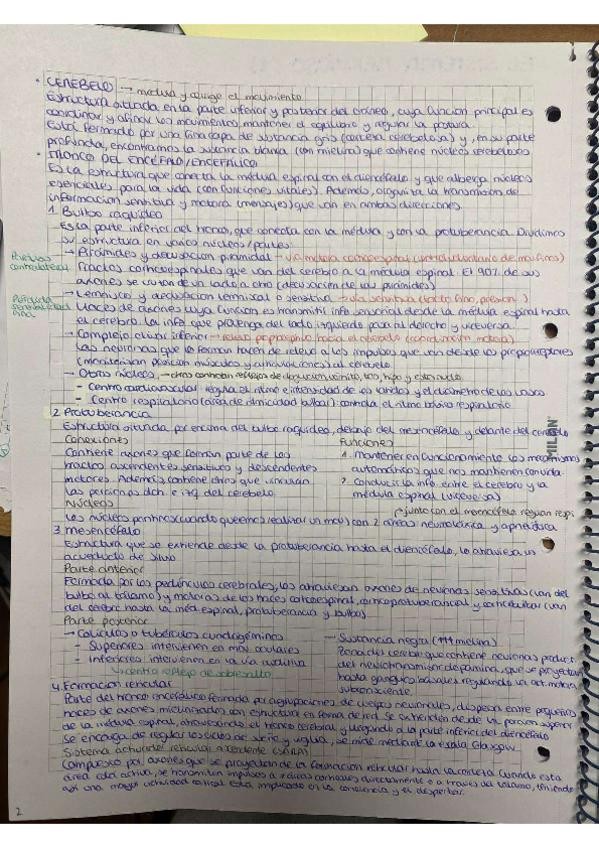 · CEREBELO → modula y dirige el movimiento
Estructura situada en la parte inferior y posterior del cráneo, cuya función principal es
coordinar y afinar los movimientos, mantener el equilibrio y regular la postura.
Está formado por una fina capa de sustancia gris (corteza cerebelosa) y, en su parte
profunda, encontramos la sustancia blanca (con mielina) que contiene núcleos cerebelosos.
· TRONCO DEL ENCÉFALO/ENCEFÁLICO
Es la estructura que conecta la médula espinal con el diencéfalo y que alberga núcleos
esenciales para la vida (con funciones vitales). Además, organiza la transmisión de
información sensitiva y motora (mensajes) que van en ambas direcciones.
1. Bulbo raquídeo
Es la parte inferior del tronco, que conecta con la médula y con la protuberancia. Dividimos
su estructura en varios núcleos/partes:
→ Pirámides y decusación piramidal → vía motora corticoespinal
Parálisis contralateral
Tractos corticoespinales que van del cerebro a la médula espinal. El 90% de sus
axones se cruzan de un lado a otro (decusación de las pirámides)
→ Lemnisco y decusación lemniscal o sensitiva → vía sensitiva (tacto fino, presión)
Pérdida sensibilidad fina
Haces de axones cuya función es transmitir info sensorial desde la médula espinal hasta
el cerebro. La info que provenga del lado izquierdo pasa al derecho y viceversa.
→ Complejo olivar inferior → (coordinación motora)
Las neuronas que lo forman hacen de relevo a los impulsos que van desde los propioceptores
posición músculos y articulaciones) al cerebelo.
→ Otros núcleos → otros controlan reflejos de deglución, vómito, tos, hipo y estornudo.
- Centro cardiovascular: regula el ritmo e intensidad de los latidos y el diámetro de los vasos
- Centro respiratorio (área de ritmicidad bulbar): controla el ritmo básico respiratorio
2. Protuberancia
Estructura situada por encima del bulbo raquídeo, debajo del mesencéfalo y delante del cerebelo
Conexiones
Contiene axones que forman parte de los
tractos ascendentes sensitivos y descendentes
motores. Además contiene otros que vinculan
las porciones dch. e izq del cerebelo.
Funciones
1. Mantener en funcionamiento los mecanismos
automáticos que nos mantienen con vida.
2. Conducir la info. entre el cerebro y la
médula espinal (viceversa)
Núcleos
→ junto con el mesencéfalo regulan resp.
Los núcleos pontinos (cuando queremos realizar un mov) con 2 áreas neumotáxica y apnéustica
3. Mesencéfalo
Estructura que se extiende desde la protuberancia hasta el diencéfalo, lo atraviesa un
acueducto de Silvio
Parte anterior
Formada por los pedúnculos cerebrales, los atraviesan axones de neuronas sensitivas (van del
bulbo al tálamo) y motoras de los haces corticoespinal, corticoprotuberancial y corticobulbar (van
del cerebro hasta la méd. espinal, protuberancia y bulbo).
Parte posterior
→ Colículos o tubérculos cuadrigéminos
- Superiores intervienen en mov. oculares
- Inferiores intervienen en la vía auditiva
centro reflejo de sobresalto
→ Sustancia negra (
Zona del cerebro que contiene neuronas product.
del neurotransmisor dopamina, que se proyectan
hasta ganglios basales regulando la act. motora
subconsciente.
4. Formación reticular
Parte del tronco encefálico formada por agrupaciones de cuerpos neuronales, dispersa entre pequeños
haces de axones mielinizados con estructura en forma de red. Se extienden desde la porción superior
de la médula espinal, atravesando el tronco cerebral y llegando a la parte inferior del diencéfalo
Se encarga de regular los ciclos de sueño y vigilia, se mide mediante la escala Glasgow.
Sistema activador reticular ascendente (SARA)
Compuesto por axones que se proyectan de la formación reticular hasta la corteza. Cuando esta
área está activa, se transmiten impulsos a áreas corticales directamente o a través del tálamo, teniendo
así una mayor actividad cortical. Está implicado en la consciencia y el despertar.
MILAN
2